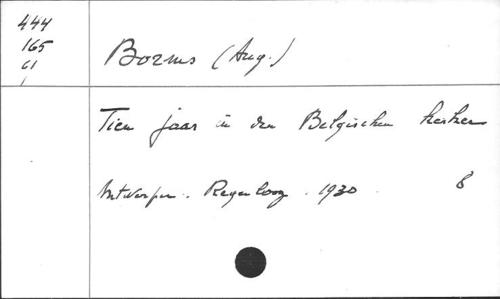 444
165
61
Borms (Aug.)
Tien jaar in den Belgischen kerker
Antwerpen. Regenboog. 1930. 8